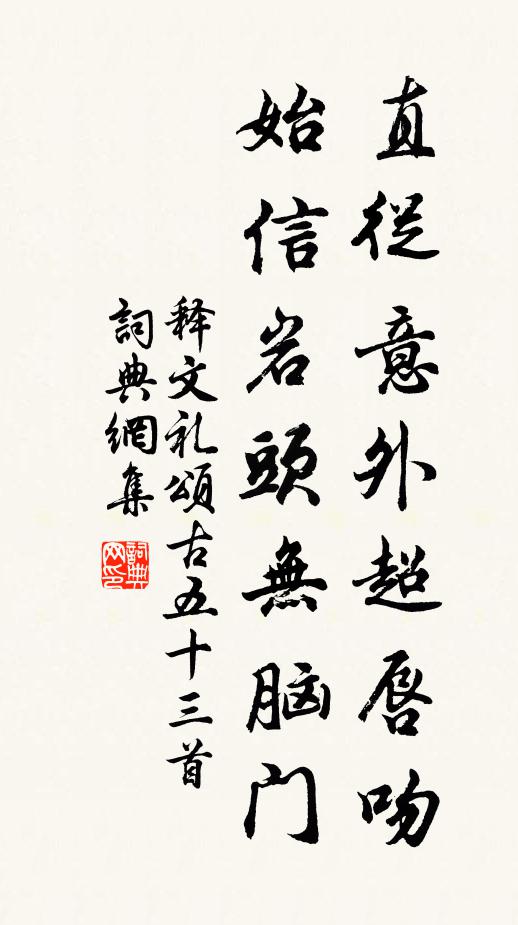 直從意外超唇吻
始信岩頭無脑门
释文礼頌古五十三首
詞典網集
詞典网印